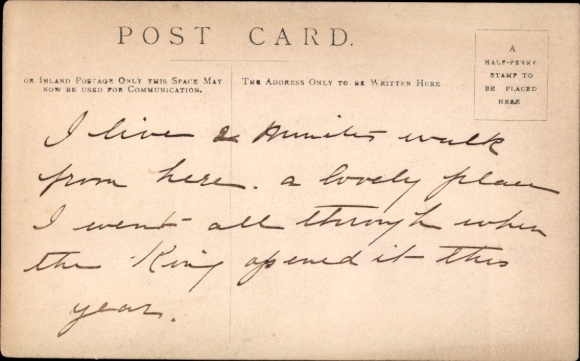 POST CARD.
A
HALF-PENNY
STAMP TO
BE PLACED
HERE
OR INLAND POSTAGE ONLY THIS SPACE MAY
NOW BE USED FOR COMMUNICATION.
THE ADDRESS ONLY TO BE WRITTEN HERE
I live 2 minutes walk
from here. a lovely place
I went all through when
the King opened it this
year.